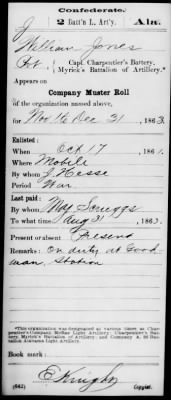 Confederate.
J 2 Batt'n L. Art'y. Ala.
William Jones
Pvt, Capt. Charpentier's Battery,
Myrick's Battalion of Artillery.*
Appears on
Company Muster Roll
of the organization named above,
for Nov 1 & Dec 31, 1863.
Enlisted:
When Oct 17, 1861.
Where Mobile
By whom J. Hesse
Period War
Last paid:
By whom Maj Scruggs
To what time Aug 31, 1863.
Present or absent Present
Remarks: On duty at Good
man, Station
*This organization was designated at various times as Charpentier's Company
Book mark:
(642) Copyist.